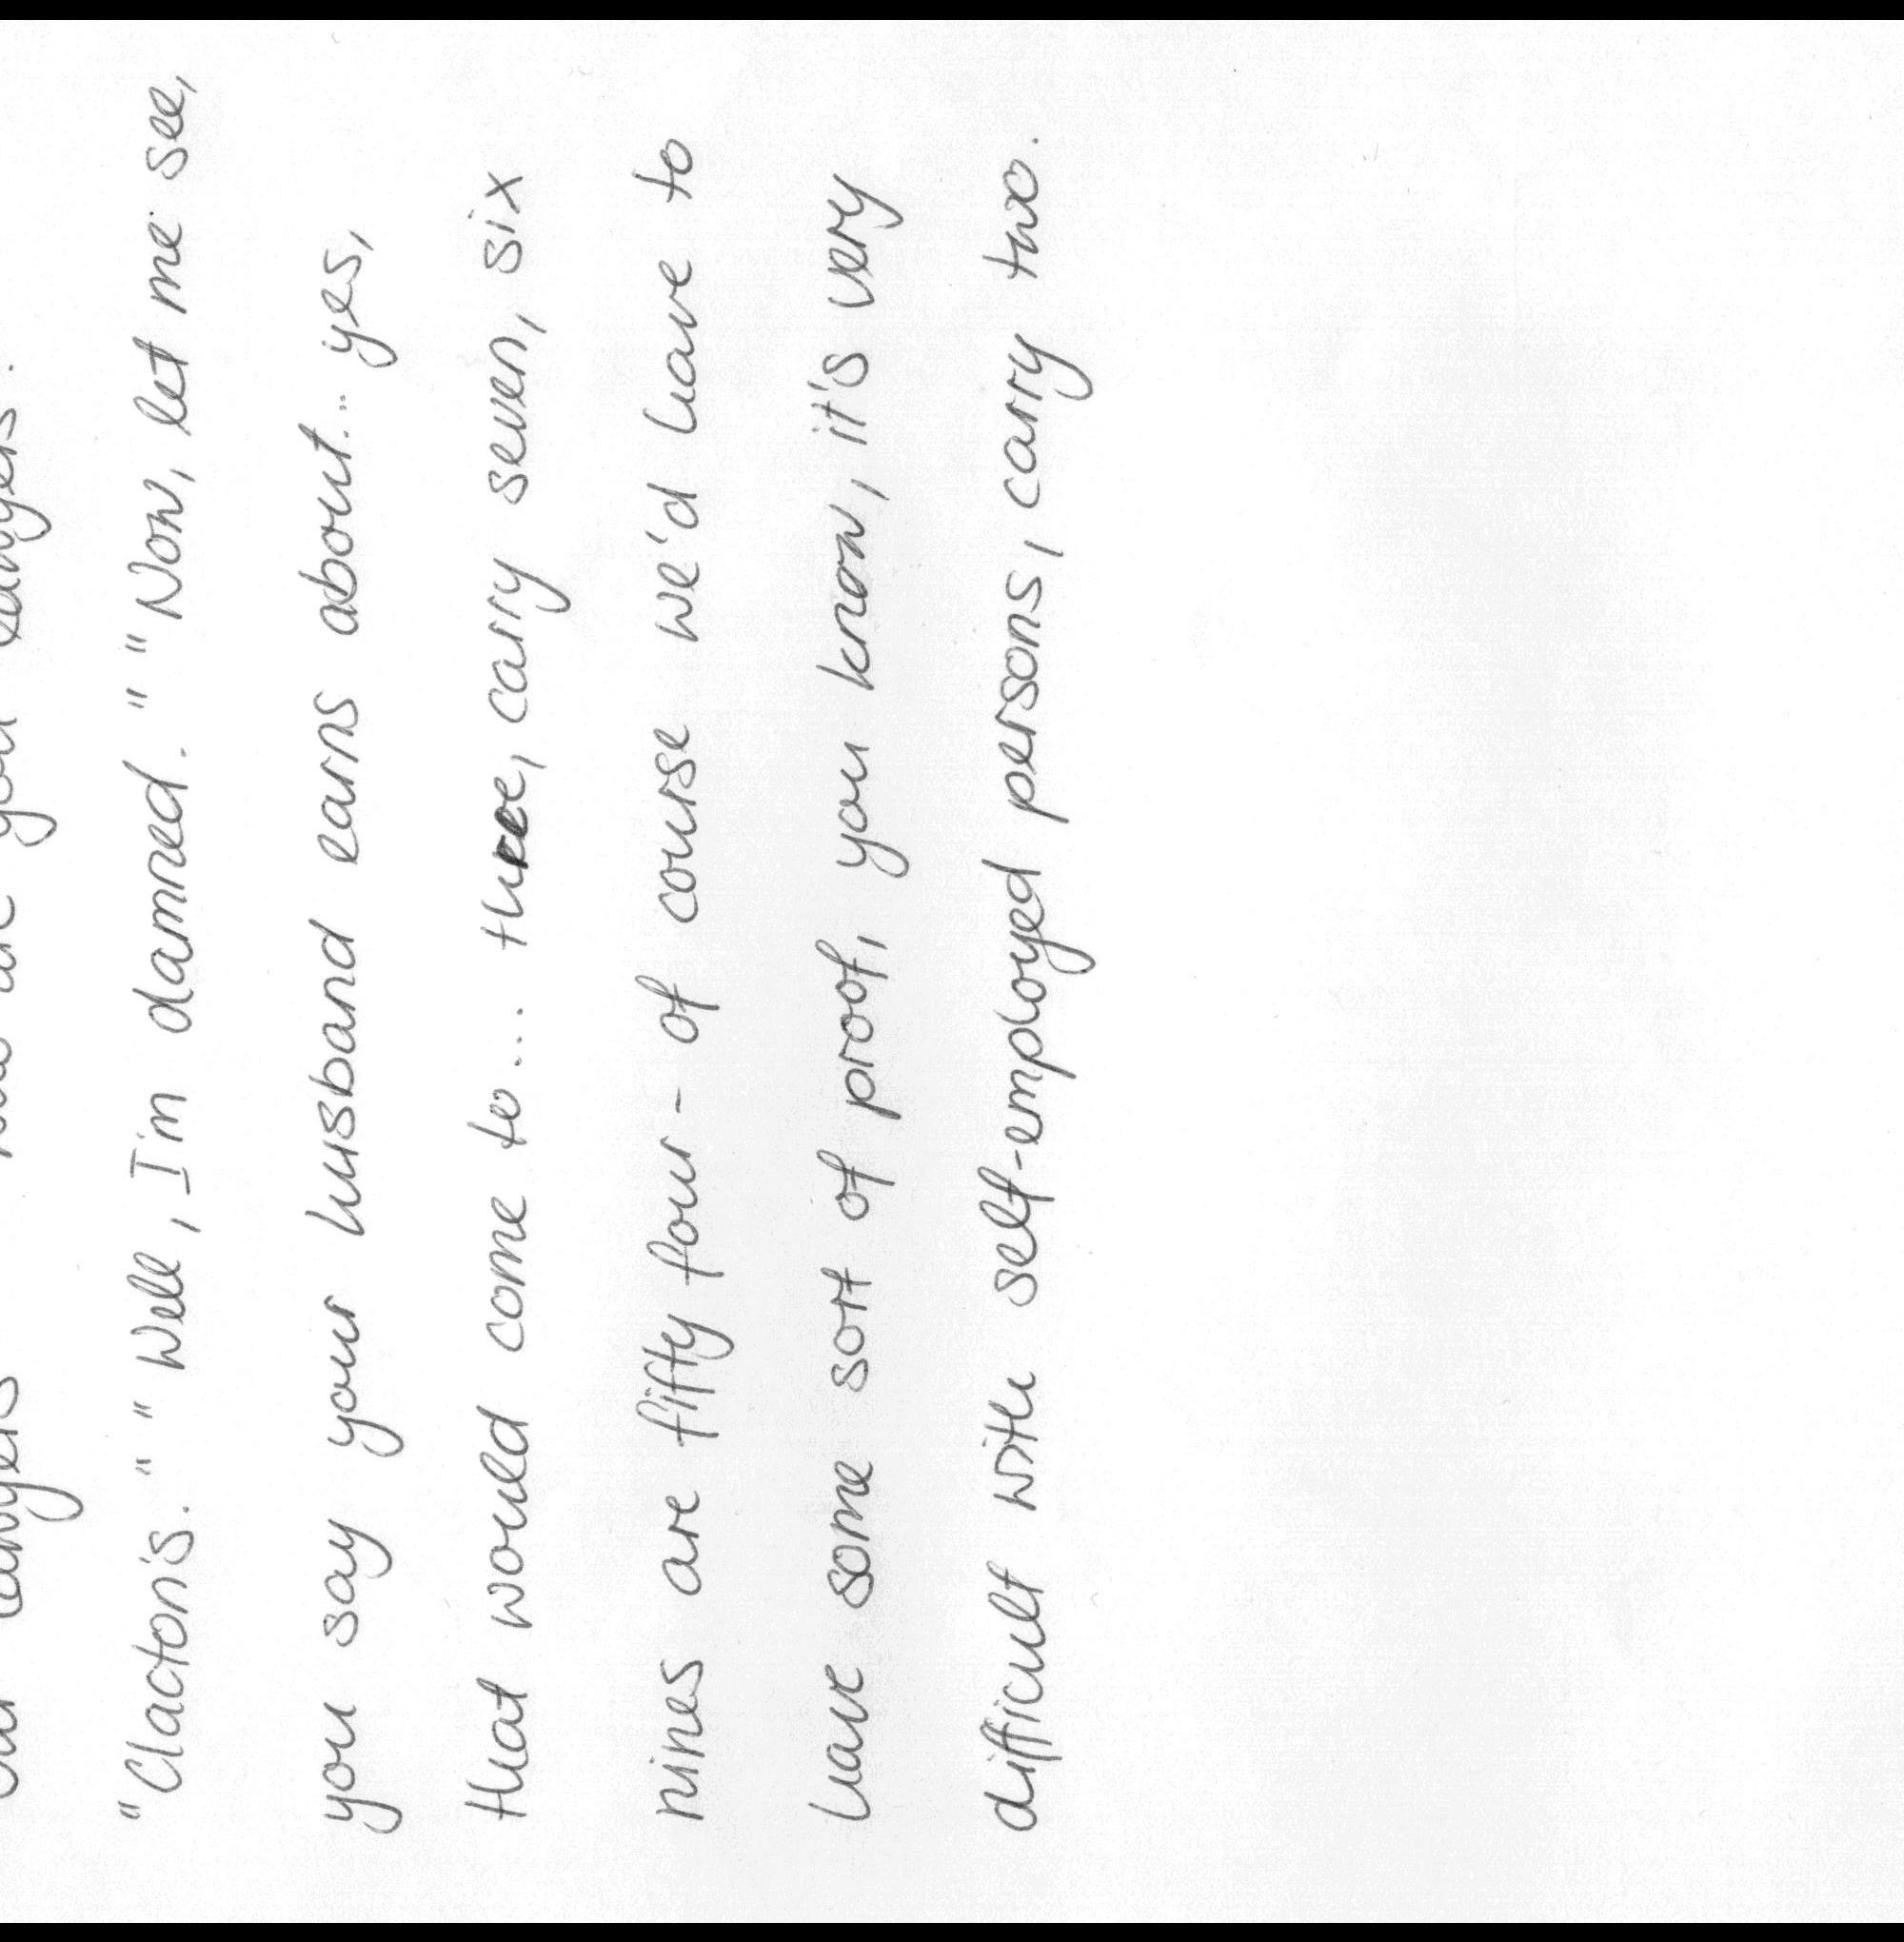 "Clacton's." "Well, I'm damned." "Now, let me see,
you say your husband earns about... yes,
that would come to... three, carry seven, six
nines are fifty four - of course we'd have to
have some sort of proof, you know, it's very
difficult with self-employed persons, carry two.